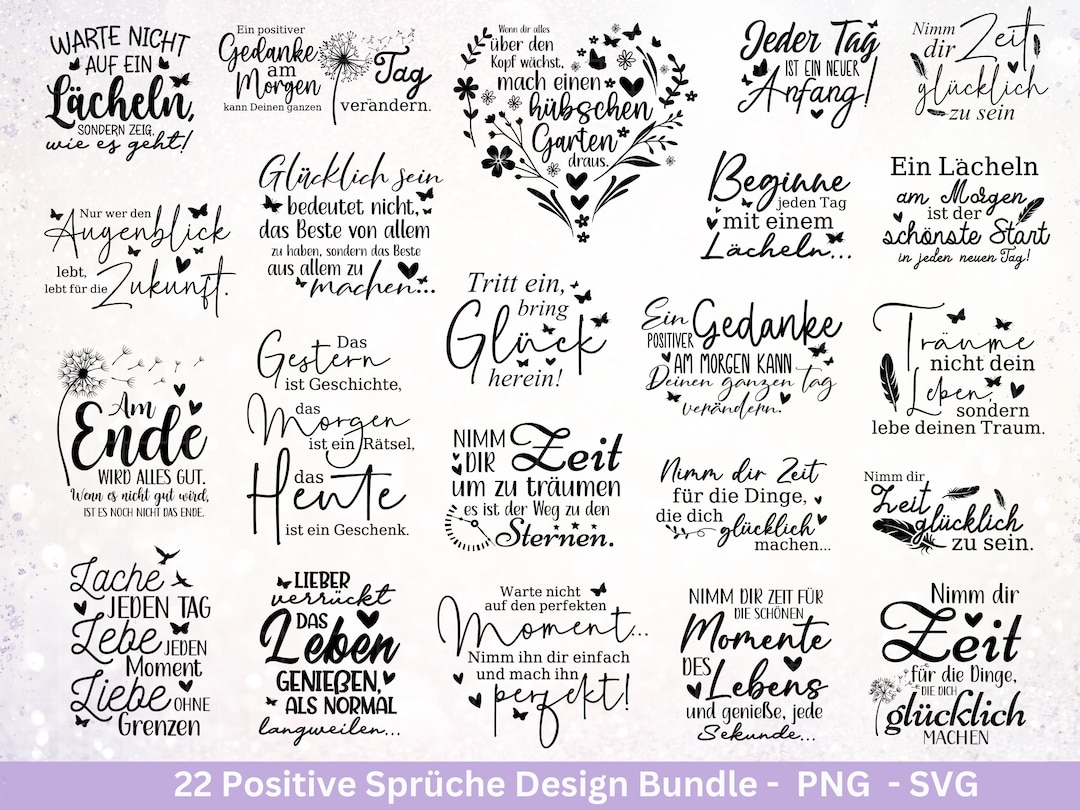 WARTE NICHT
AUF EIN
Lächeln,
SONDERN ZEIG,
wie es geht!
Ein positiver
Gedanke
am
Morgen
kann Deinen ganzen
Tag
verändern.
Wenn dir alles
über den
Kopf wächst,
mach einen
hübschen
Garten
draus.
Jeder Tag
IST EIN NEUER
Anfang!
Nimm
dir Zeit
glücklich
zu sein
Nur wer den
Augenblick
lebt,
lebt für die Zukunft.
Glücklich sein
bedeutet nicht,
das Beste von allem
zu haben, sondern das Beste
aus allem zu
machen...
Beginne
jeden Tag
mit einem
Lächeln...
Ein Lächeln
am Morgen
ist der
schönste Start
in jeden neuen Tag!
Tritt ein,
bring
Glück
herein!
Ein
POSITIVER
Gedanke
AM MORGEN KANN
Deinen ganzen tag
verändern.
Träume
nicht dein
Leben,
sondern
lebe deinen Traum.
Am
Ende
WIRD ALLES GUT.
Wenn es nicht gut wird,
IST ES NOCH NICHT DAS ENDE.
Das
Gestern
ist Geschichte,
das
Morgen
ist ein Rätsel,
das
Heute
ist ein Geschenk.
NIMM
DIR Zeit
um zu träumen
es ist der Weg zu den
Sternen.
Nimm dir Zeit
für die Dinge,
die dich
glücklich
machen...
Nimm dir
Zeit
glücklich
zu sein.
Lache
JEDEN TAG
Lebe JEDEN
Moment
Liebe OHNE
Grenzen
LIEBER
verrückt
DAS
Leben
GENIEẞEN,
ALS NORMAL
langweilen...
Warte nicht
auf den perfekten
Moment...
Nimm ihn dir einfach
und mach ihn
perfekt!
NIMM DIR ZEIT FÜR
DIE SCHÖNEN
Momente
DES
Lebens
und genieße, jede
Sekunde...
Nimm dir
Zeit
für die Dinge,
DIE DICH
glücklich
MACHEN
22 Positive Sprüche Design Bundle - PNG - SVG